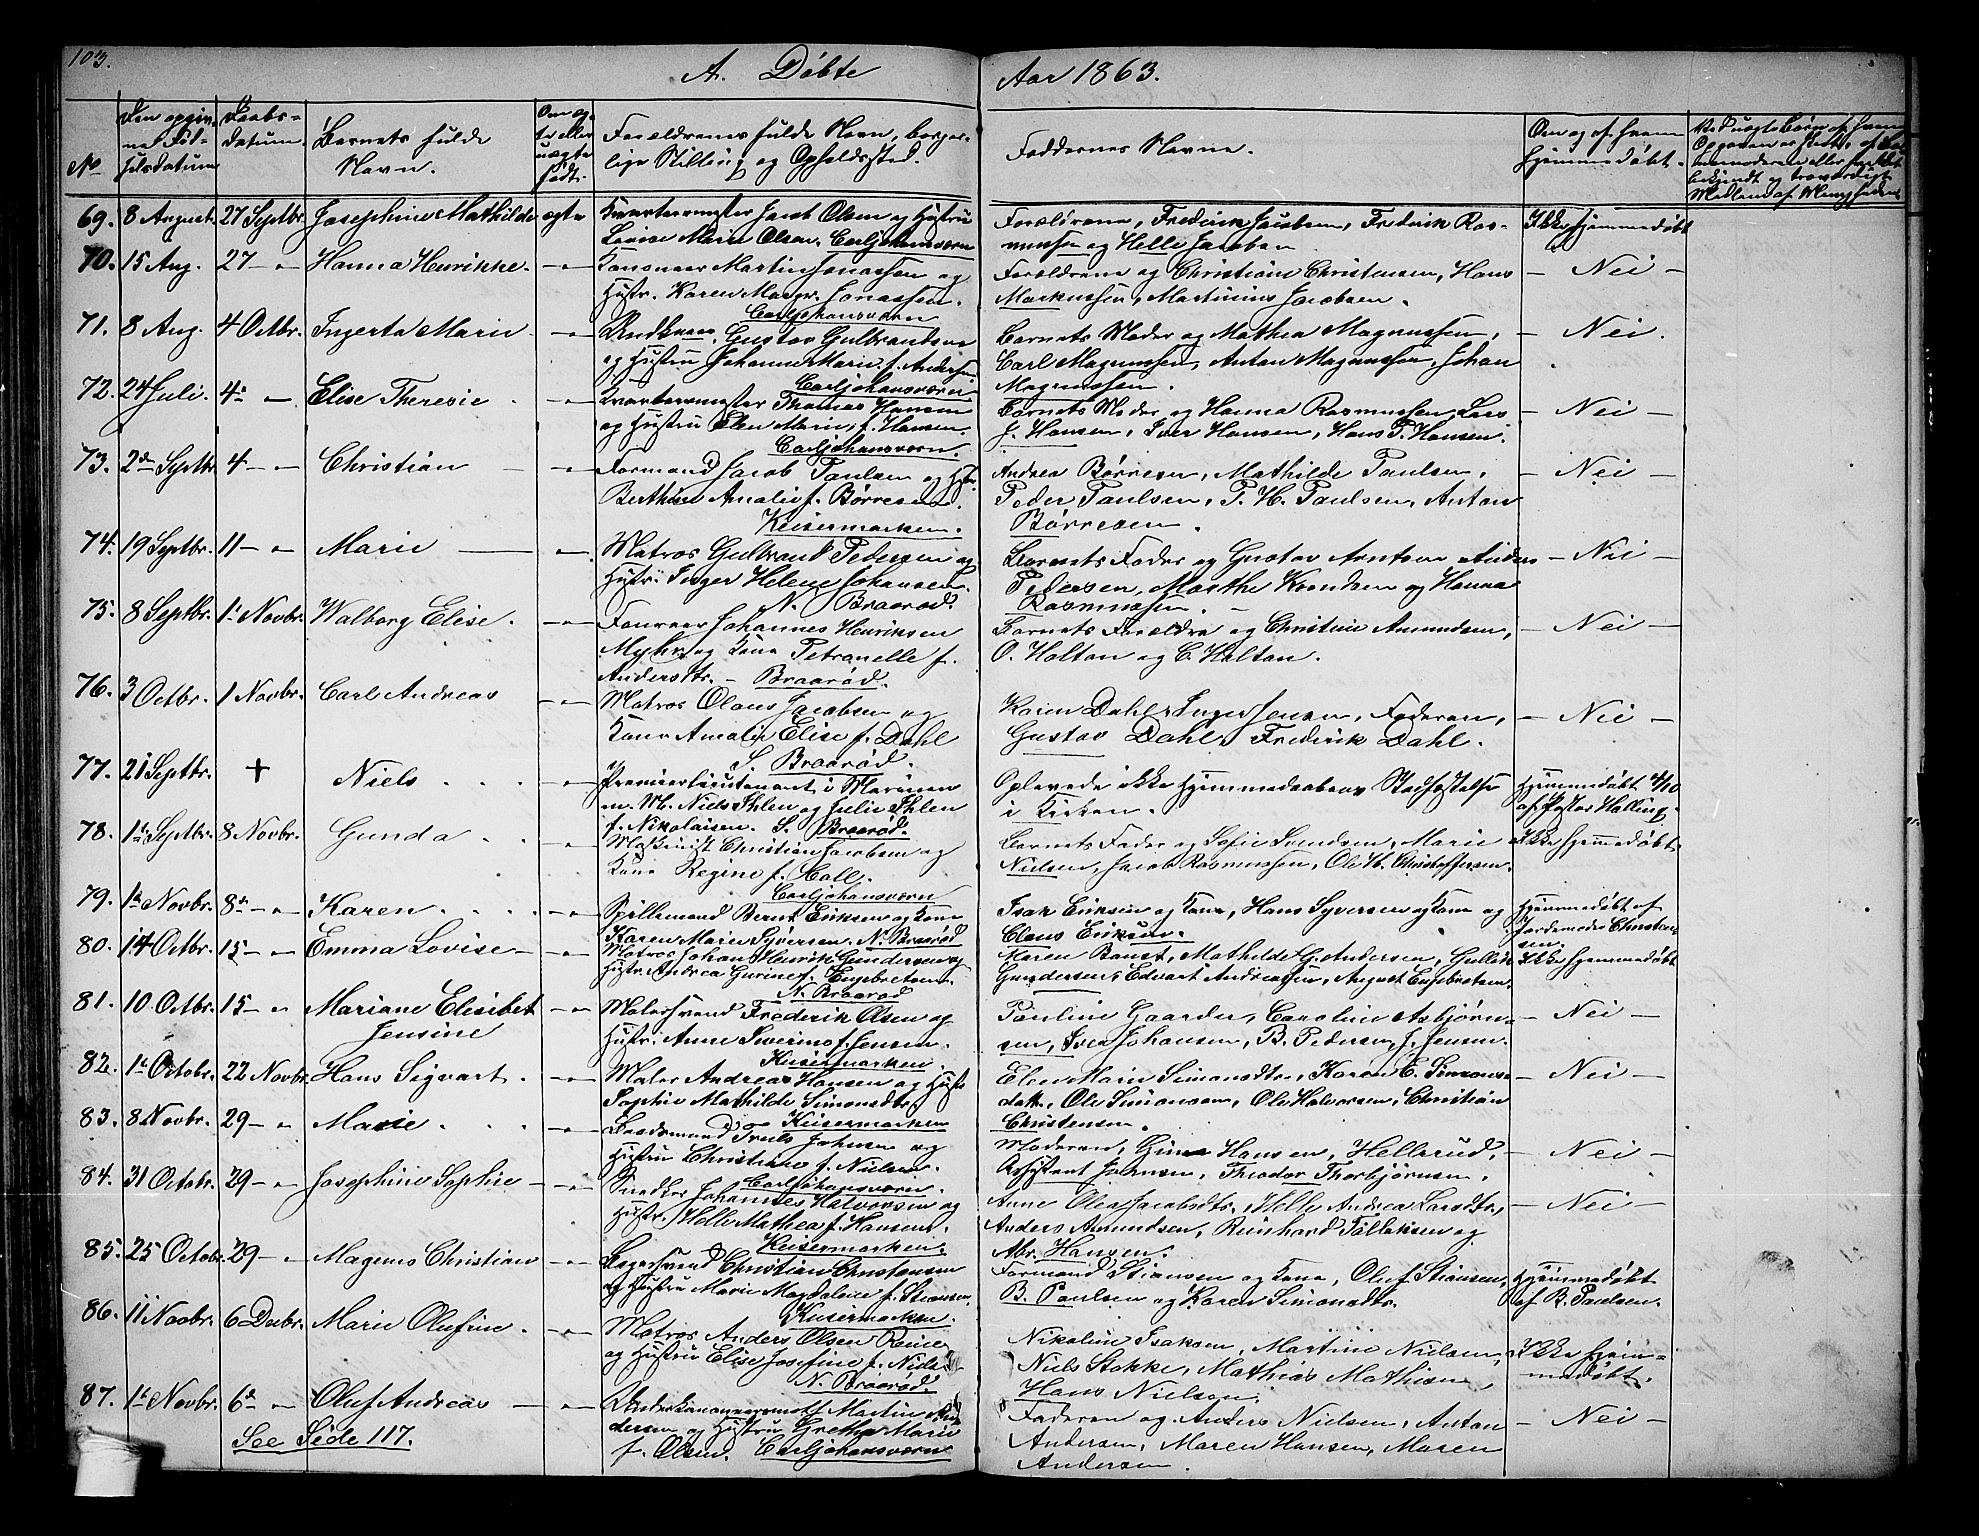 103.
A. Døbte
Aar 1863.
No
Den opgiv-
ne Fød-
selsdatum
Daabs-
datum.
Barnets fulde
Navn.
Om æg-
te eller
uægte
født.
Forældrenes fulde Navn, borger-
lige Stilling og Opholdssted.
Faddernes Navne.
Om og af hvem
hjemmedøbt.
69. 8 August. 27 Septbr. Josephine Mathilde ægte
Kvarteermester Jacob Olsen og Hustru
Lovise Marie Olsen. Carljohansværn
Forældrene, Fredrik Jacobsen, Fredrik Ras-
mussen og Helle Jacobsen
Ikke hjemmedøbt
70. 15 Aug. 27 - " Hanna Henrikke. - " -
Kanoneer Martin Jonassen og
Hustr. Karen Margr. Jonassen.
Carljohansværn
Forældrene og Christiane Christensen, Hans
Markussen, Martinius Jacobsen.
- Nei -
71. 8 Aug. 4 Octbr. Ingerta Marie - " -
Gustav Gulbrandsen
og Hustru Johanne Marie f. Andersen
Carljohansværn
Barnets Moder og Mathea Magnussen,
Carl Magnussen, Anton Magnussen, Johan
Magnussen.
- Nei.
72. 24 Juli. 4 - Elise Theresie - " -
Kvarteermester Thomas Hansen
og Hustru Elen Marie f. Hansen.
Carljohansværn.
Barnets Moder og Hanna Rasmussen, Lars
J. Hansen, Iver Hansen, Hans P. Hansen.
- Nei -
73. 2den Septbr. 4 - " Christian - " -
Formand Jacob Paulsen og Hstr.
Berthine Amalie f. Børresen.
Keisermarken.
Andrea Børresen, Mathilde Paulsen,
Peder Paulsen, P. H. Paulsen, Anton
Børresen.
- Nei -
74. 19 Septbr. 11 - " Marie - " -
Matros Gulbrand Pedersen og
Hustr. Inger Helene Johansen.
N. Braarød.
Barnets Fader og Gustav Arntsen, Anders
Pedersen, Marthe Knudsen og Hanna
Rasmussen.
- Nei -
75. 8 Septbr. 1. Novbr. Walborg Elise. - " -
Foureer Johannes Henriksen
Myhr og Kone Petronelle f.
Andersdtr. - Braarød.
Barnets Forældre og Christine Amundsen,
O. Holtan og C. Holtan.
- Nei -
76. 3 Octbr. 1 Novbr. Carl Andreas - " -
Matros Olaus Jacobsen og
Kone Amalie Elise f. Dahl
S. Braarød.
Karen Dahl, Inger Jensen, Faderen,
Gustav Dahl, Fredrik Dahl.
- Nei -
77. 21 Septbr. + Niels - " -
Premierlieutenant i Marinen
m. M. Niels Ihlen og Julie Ihlen
f. Nikolaisen. S. Braarød.
Oplevede ikke Hjemmedaabens Stadfæstelse
i Kirken.
Hjemmedøbt 4/10
af Pastor Halling.
78. 1te Septbr. 8 Novbr. Gunda - " -
Maskinist Christian Jacobsen og
Kone Regine f. Hall.
Carljohansværn
Barnets Fader og Sofie Svendsen, Marie
Nielsen, Jacob Rasmussen, Ole H. Christoffersen.
Ikke hjemmedøbt
79. 1te Novbr. 8de - " Karen. - " -
Spillemand Bernt Eriksen og Kone
Karen Marie Syversen. N. Braarød
Isak Eriksen og Kone, Hans Syversen og Kone og
Claus Eriksen.
Hjemmedøbt af
Jordemoder Christen-
sen.
80. 14 Octbr. 15 - " Emma Lovise - " -
Matros Johan Henrik Gundersen og
Hustr. Andrea Gurine f. Engebretsen.
N. Braarød
Maren Banst, Mathilde G. Andersen, Gulbr.
Gundersen, Edvart Andreassen, August Engebretsen.
Ikke hjemmedøbt
81. 10 Octbr. 15 - " Mariane Elisibet
Jensine - " -
Malersvend Frederik Olsen og
Hustr. Anne Severine f. Jensen.
Keisermarken
Pauline Gaarder, Caroline Asbjørn-
sen, Sven Johansen, B. Pedersen, J. Jensen.
- Nei -
82. 1te Octobr. 22 Novbr. Hans Sigvart. - " -
Maler Andreas Hansen og Hustr.
Sophie Mathilde Simonsdtr.
Keisermarken
Elen Marie Simonsdtr., Karen E. Simons-
datr., Ole Simonsen, Ole Halvorsen, Christian
Christensen.
- Nei -
83. 8 Novbr. 29 - " Marie - " -
Baadsmand Truls Johnsen og
Hustru Christine f. Nielsen.
Carljohansværn.
Moderen, Gine Hansen, Hellerud,
Assistent Johnsen, Theodor Thorbjørnsen.
- Nei -
84. 31 Octobr. 29 - " Josephine Sophie - " -
Snedker Johannes Halvorsen og
Hustr. Helle Mathea f. Hansen.
Keisermarken.
Anne Olea Jacobsdtr., Helle Andrea Larsdtr.,
Anders Amundsen, Reinhard Tollaksen og
Abr. Hansen.
- Nei -
85. 25 Octobr. 29 - " Magnus Christian - " -
Bagersvend Christian Christensen
og Hustru Marie Magdalene f. Stiansen
Keisermarken.
Formand Stiansen og Kone, Oluf Stiansen,
B. Paulsen og Karen Simonsdtr.
Hjemmedøbt
af R. Paulsen.
86. 11 Novbr. 6 Decbr. Marie Olufine. - " -
Matros Anders Olsen Reine
og Hustru Elise Josefine f. Niels-
N. Braarød.
Nikoline Isaksen, Martine Nielsen,
Niels Stokke, Mathias Mathisen,
Hans Nielsen.
Ikke hjem-
medøbt.
87. 1te Novbr. 6te - " Oluf Andreas - " -
Underkanoneer Martin
og Hustru Grethe Marie
f. Olsen. Carljohansværn
Faderen og Anders Nielsen, Anton
Andersen, Maren Hansen, Maren
Andersen.
- Nei -
See Side 117.